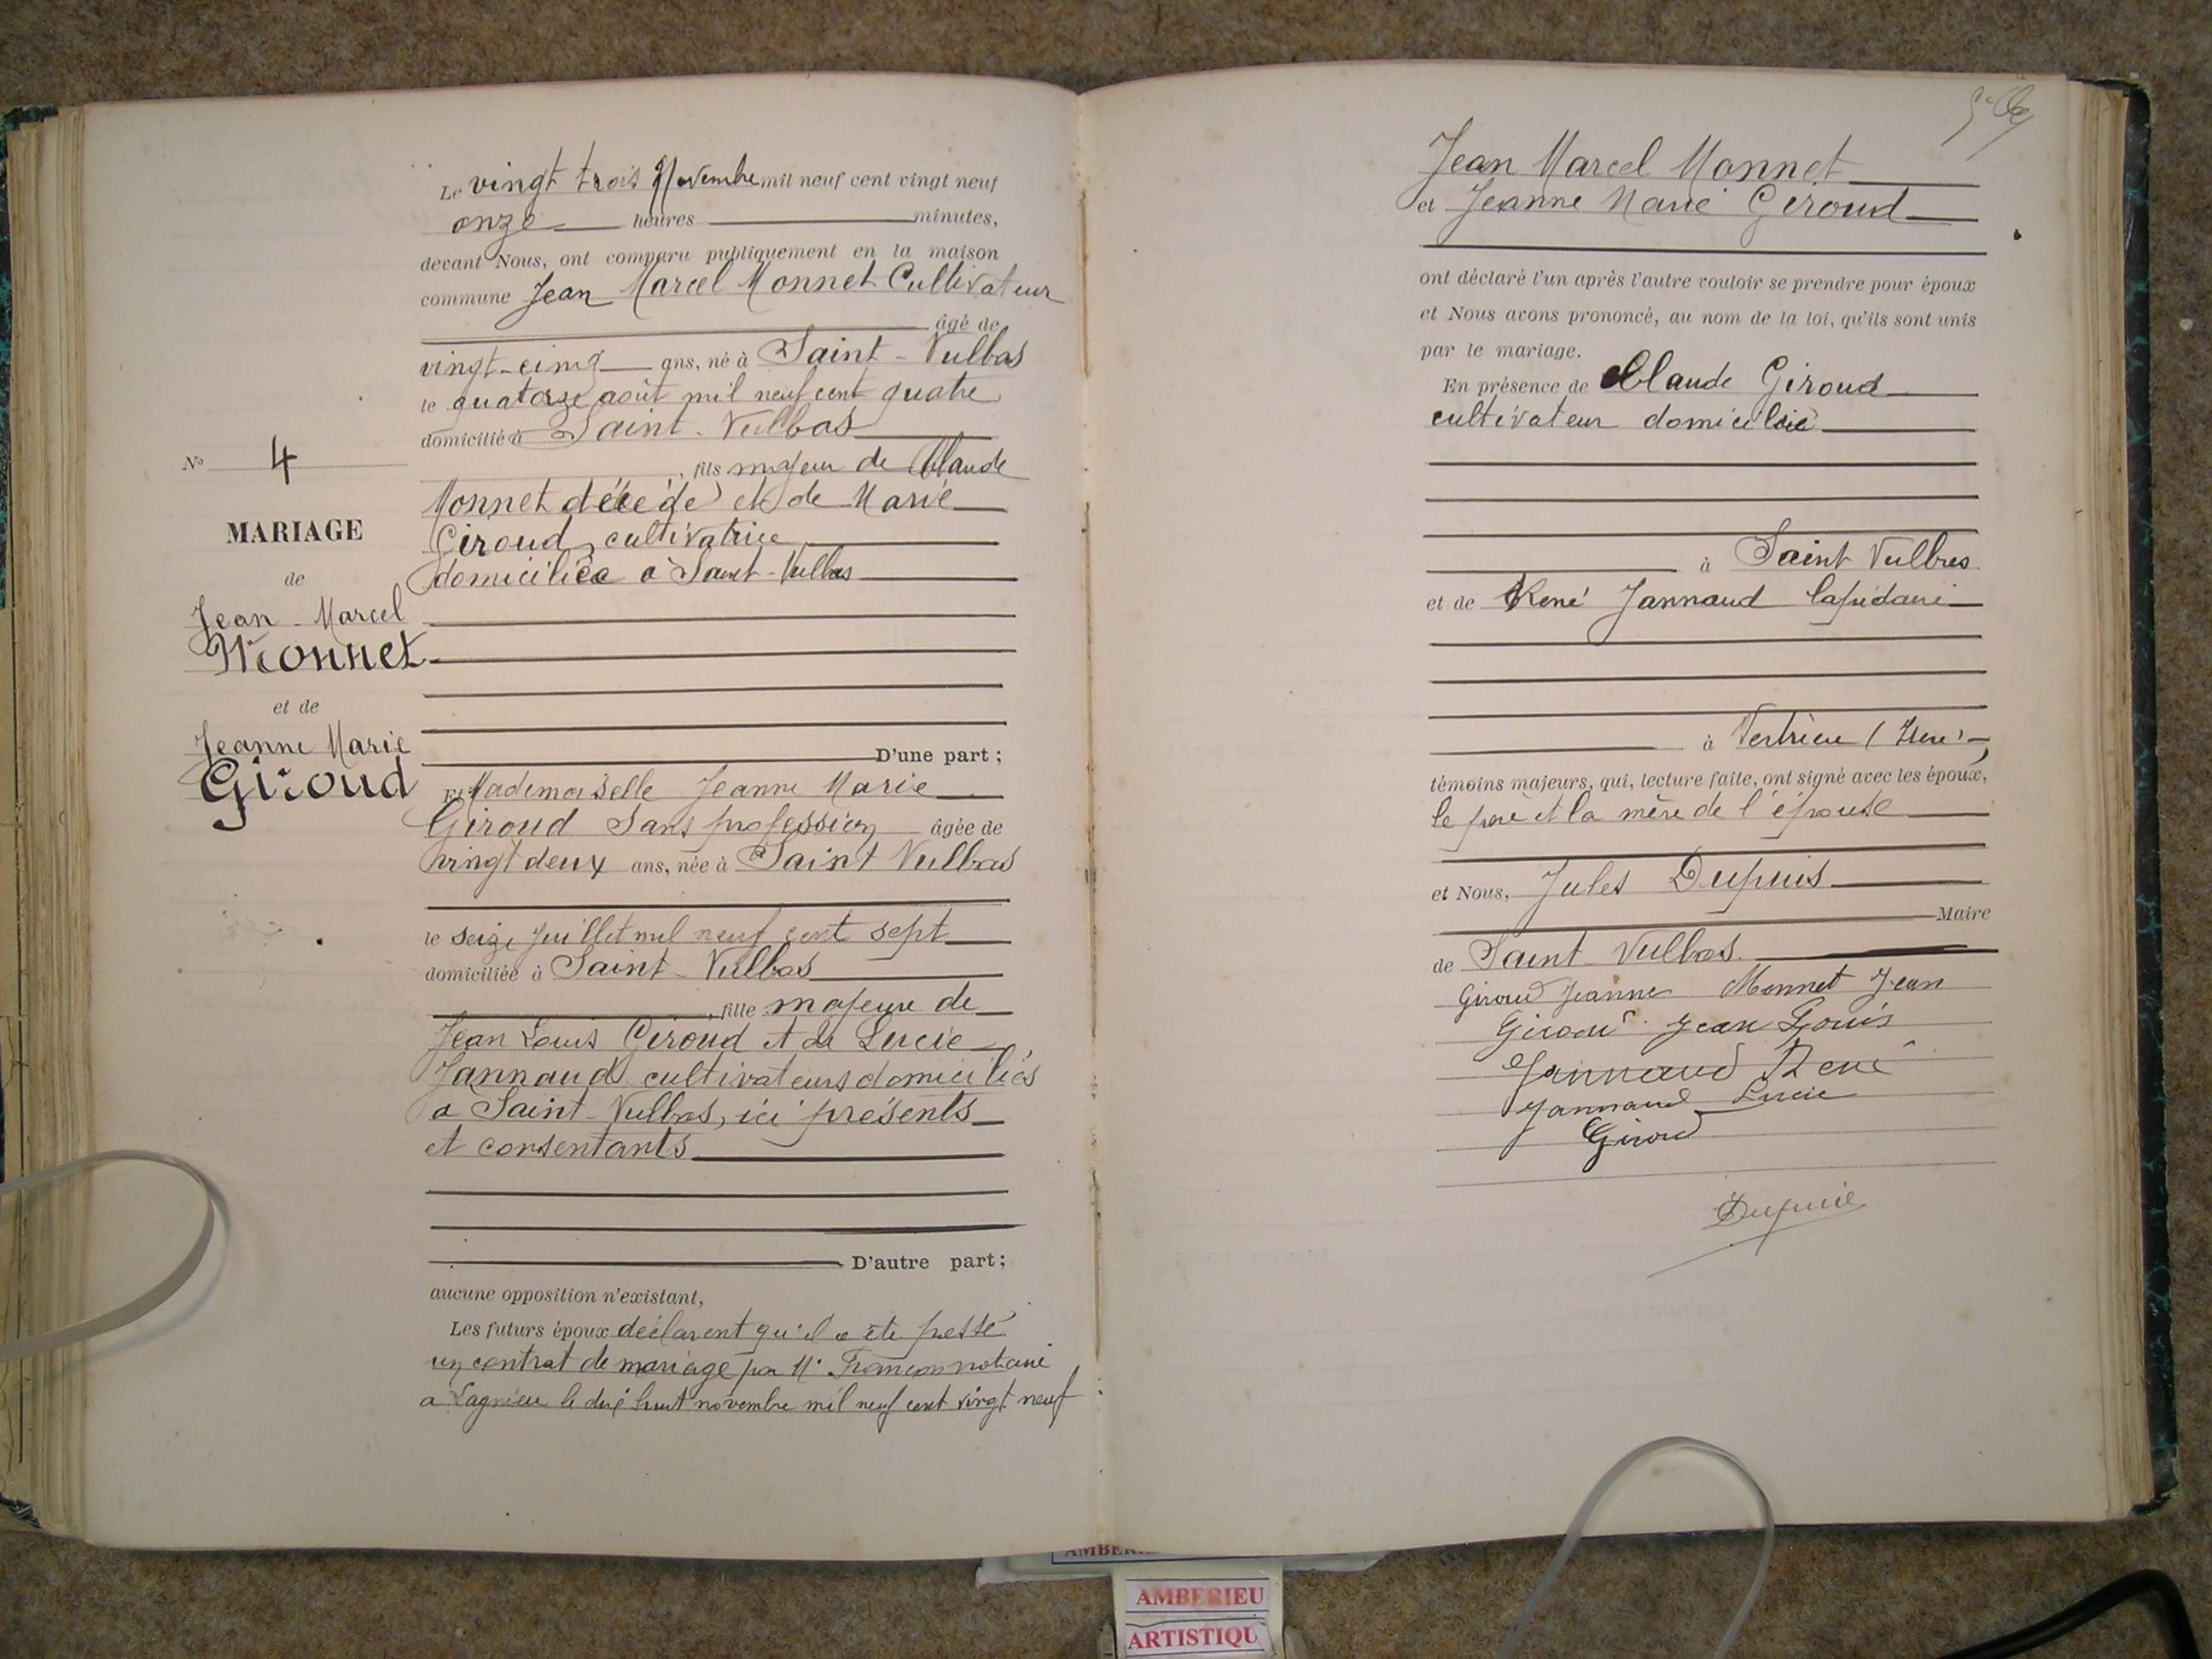 Le vingt trois Novembre mil neuf cent vingt neuf
onze heures minutes,
devant Nous, ont comparu publiquement en la maison
commune Jean Marcel Monnet Cultivateur
âgé de
vingt-cinq ans, né à Saint-Vulbas
le quatorze août mil neuf cent quatre
domicilié à Saint-Vulbas
, fils majeur de Claude
Monnet décédé et de Marie
Giroud, cultivatrice
domiciliée à Saint-Vulbas
D'une part ;
Et Mademoiselle Jeanne Marie
Giroud Sans profession âgée de
vingt deux ans, née à Saint Vulbas
le seize juillet mil neuf cent sept
domiciliée à Saint-Vulbas
, fille majeure de
Jean Louis Giroud et de Lucie
Jannaud cultivateurs domiciliés
a Saint-Vulbas, ici présents
et consentants
D'autre part ;
aucune opposition n'existant,
Les futurs époux déclarent qu'il a été passé
un contrat de mariage par Me Françon notaire
a Lagnieu le dix huit novembre mil neuf cent vingt neuf
No 4
MARIAGE
de
Jean-Marcel
Monnet
et de
Jeanne Marie
Giroud
Jean Marcel Monnet
et Jeanne Marie Giroud
ont déclaré l'un après l'autre vouloir se prendre pour époux
et Nous avons prononcé, au nom de la loi, qu'ils sont unis
par le mariage.
En présence de Claude Giroud
cultivateur domicilié
à Saint Vulbas
et de René Jannaud lapidaire
à Vertrieu (Isère)
témoins majeurs, qui, lecture faite, ont signé avec les époux,
le père et la mère de l'épouse
et Nous, Jules Dupuis
Maire
de Saint Vulbas
Giroud Jeanne Monnet Jean
Giroud Jean Louis
Jannaud René
Jannaud Lucie
Giroud
Dupuis
AMBERIEU
ARTISTIQU